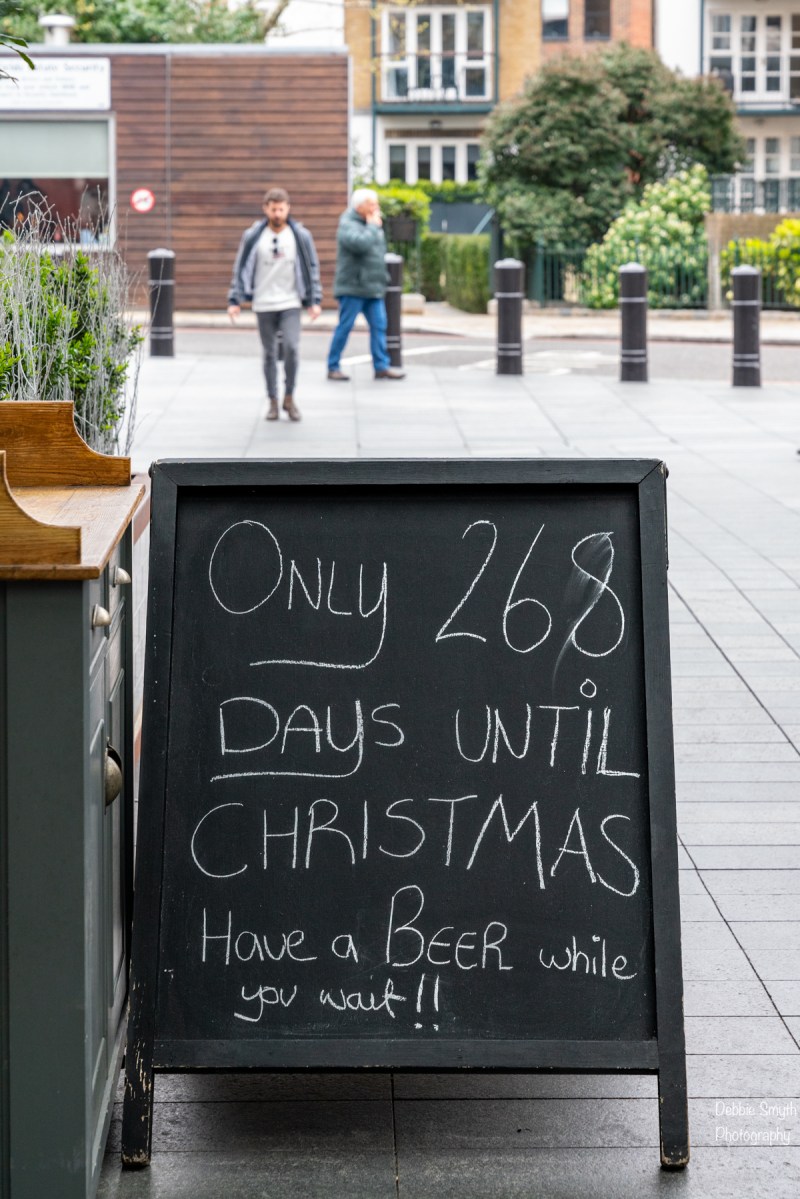 Only 268
DAYS UNTIL
CHRISTMAS
Have a BEER while
you wait!!
Debbie Smyth
Photography